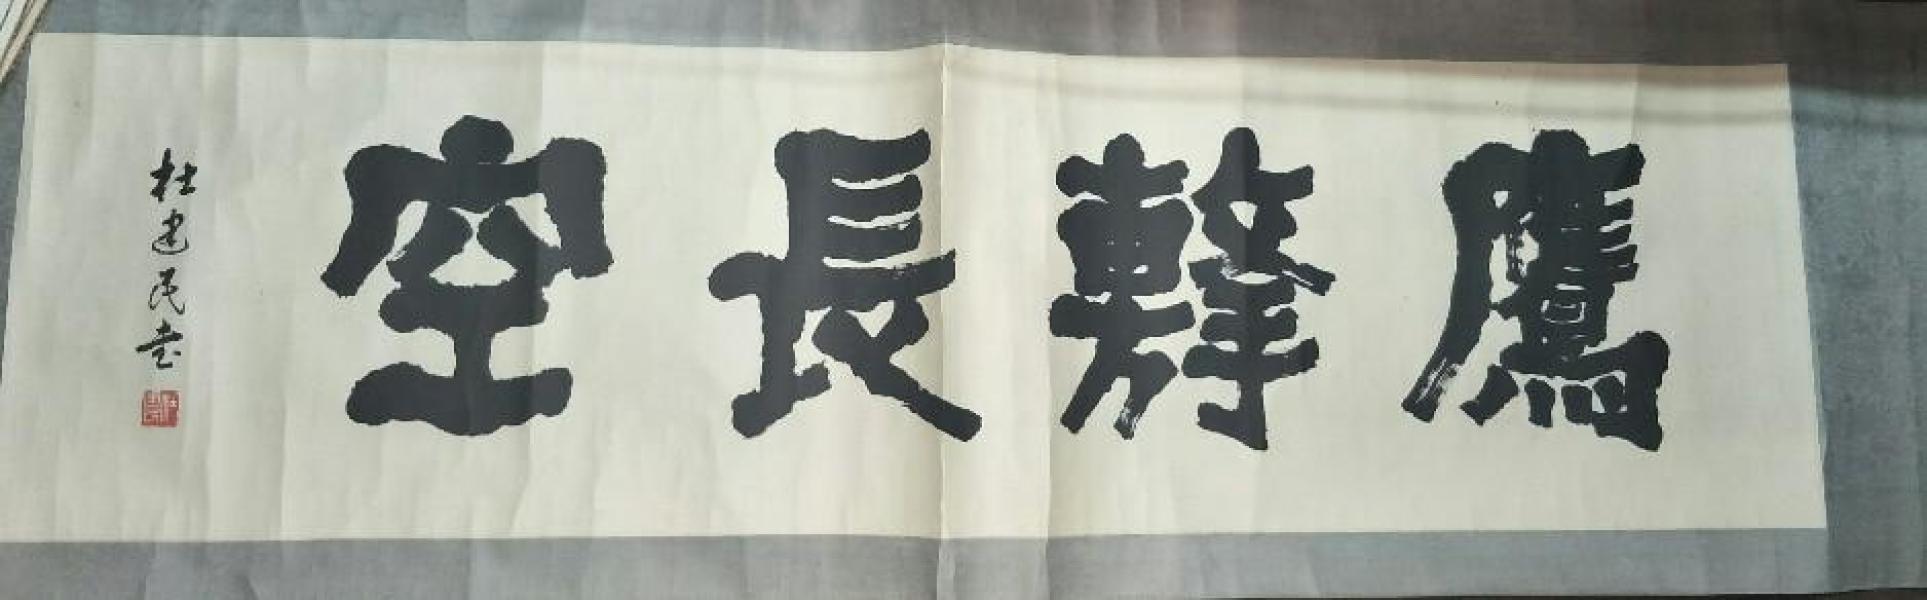 鷹擊長空
杜建民書